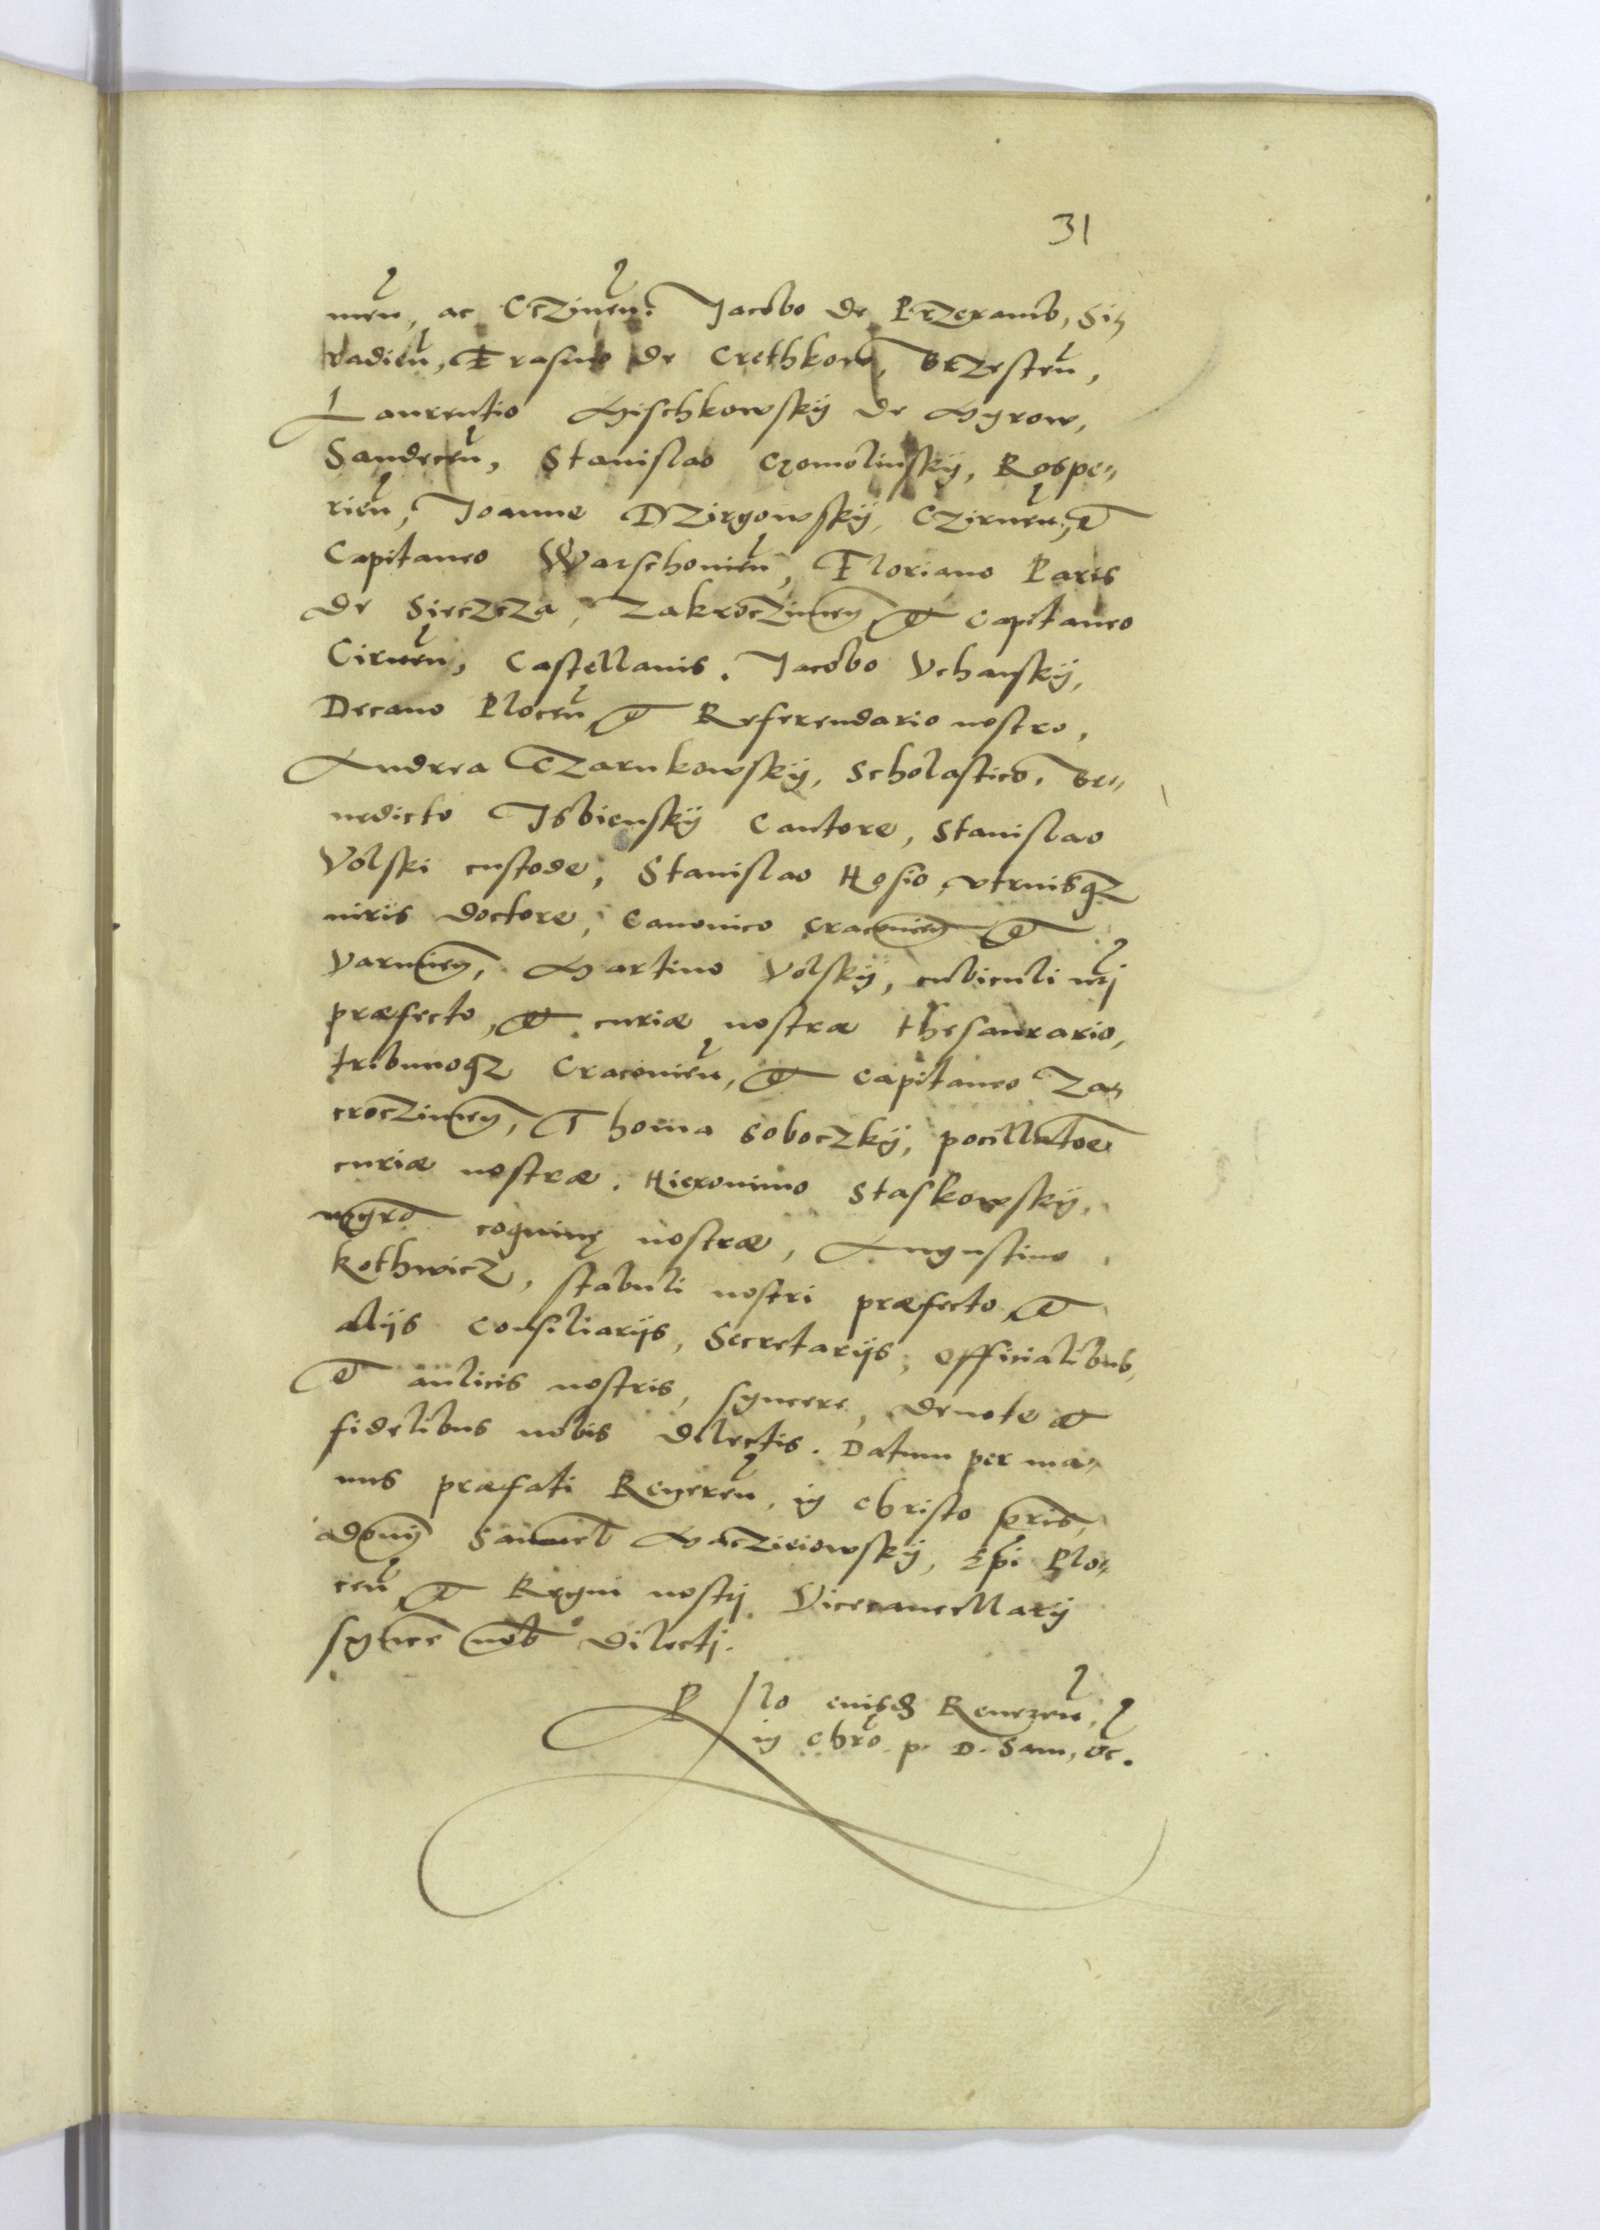 31
meñ, ac Cczineñ. Jacobo de Przeramb, Si-
radieñ, Erasmo de Crethkow, Brzesteñ,
Laurentio Mischkowskÿ de Myrow,
Sandeceñ, Stanislao Czomolinskÿ, Rospe-
rieñ, Joanne Dzirgowskÿ, Czirneñ, et
Capitaneo Warschovieñ, Floriano Paris
de Sieczcza, Zakroczimeñ et Capitaneo
Cirneñ, Castellanis. Jacobo Vchanskÿ,
Decano Ploceñ et Referendario nostro,
Andrea Czarnkowskÿ, Scholastico, Be-
nedicto Isbienskÿ Cantore, Stanislao
Volski custode, Stanislao Hosio, vtriusqz
iuris doctore, Canonico Cracovieñ et
Varmieñ, Martino Volskÿ, cubiculi nrĩ
præfecto, et curiæ nostræ thesaurario,
tribunoqz Cracovieñ, et Capitaneo Za-
croczimeñ, Thoma Soboczkÿ, pocillatore
curiæ nostræ. Hieronimo Staskowskÿ,
mgro coquinę nostræ, Augustino
Kothwicz, stabuli nostri præfecto et
alijs Consiliarijs, Secretarijs, officialibus,
et aulicis nostris, syncere, devote et
fidelibus nobis dilectis. Datum per ma-
nus præfati Revereñ, in Christo pris,
dom̃ Samuel Maczieiowskÿ, Epĩ Plo-
ceñ et Regni nostrj Vicecancellarij
syncere nob dilectj.
Rlo eiusd Revereñ,
in Chrõ p. D. Sam, etc.